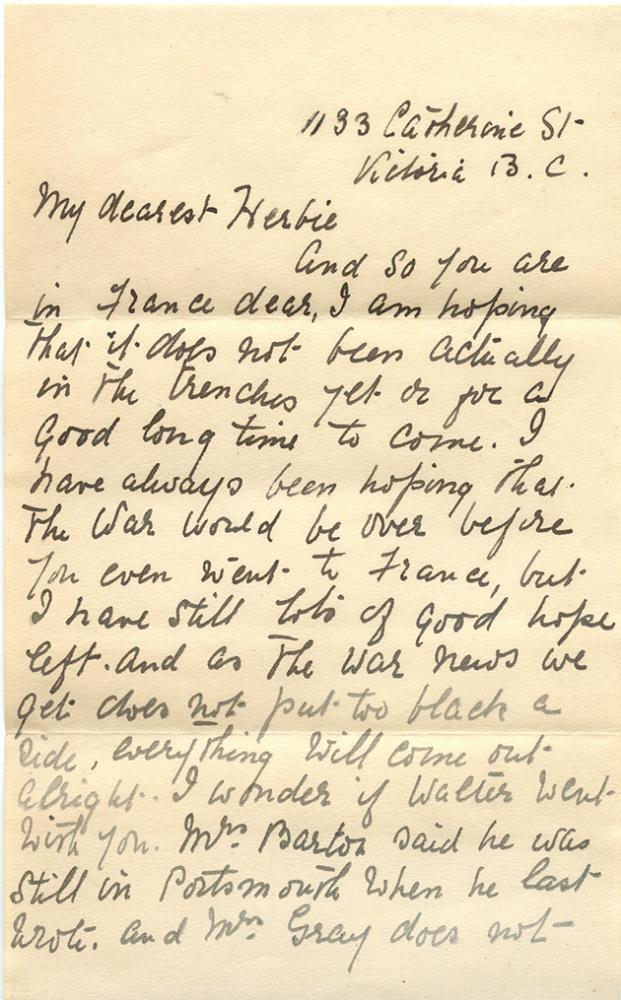 1133 Catherine St
Victoria B. C.
My dearest Herbie
And so you are
in France dear, I am hoping
that it does not been actually
in the trenches yet or for a
good long time to come. I
have always been hoping that
the War would be over before
you even went to France, but
I have still lots of good hope
left. And as the War news we
get does not put too black a
side, everything will come out
alright. I wonder if Walter went
with you. Mrs. Barton said he was
still in Portsmouth when he last
wrote. and Mrs. Gray does not